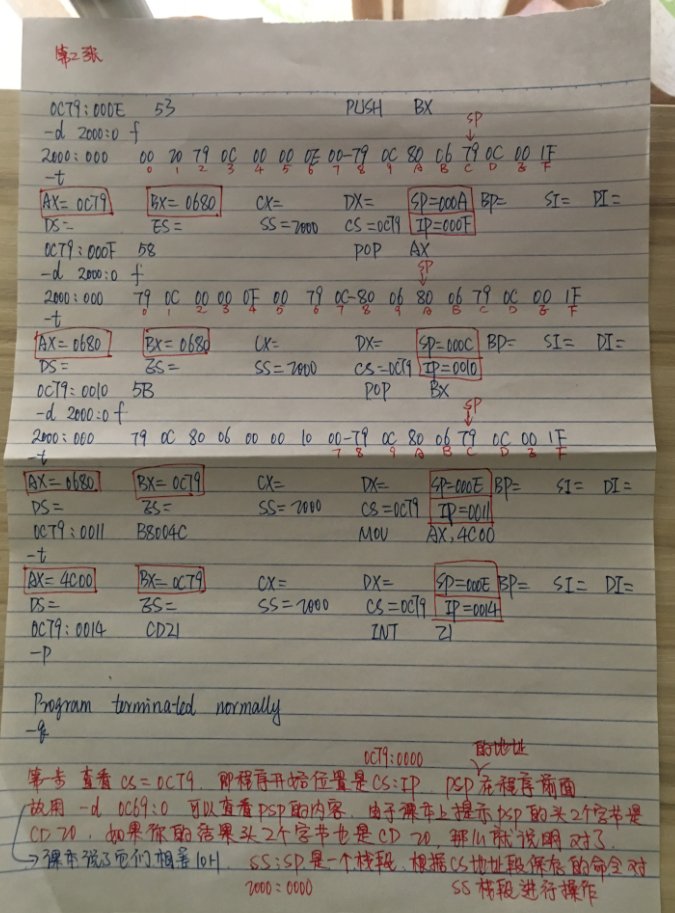 第2张
0C79:000E 53 PUSH BX
-d 2000:0 f
SP
2000:000 00 20 79 0C 00 00 0E 00-79 0C 80 06 79 0C 00 1F
0 1 2 3 4 5 6 7 8 9 A B C D E F
-t
AX=0C79 BX=0680 CX= DX= SP=000A BP= SI= DI=
DS= ES= SS=2000 CS=0C79 IP=000F
0C79:000F 58 POP AX
-d 2000:0 f
SP
2000:000 79 0C 00 00 0F 00 79 0C-80 06 80 06 79 0C 00 1F
0 1 2 3 4 5 6 7 8 9 A B C D E F
-t
AX=0680 BX=0680 CX= DX= SP=000C BP= SI= DI=
DS= ES= SS=2000 CS=0C79 IP=0010
0C79:0010 5B POP BX
-d 2000:0 f
SP
2000:000 79 0C 80 06 00 00 10 00-79 0C 80 06 79 0C 00 1F
7 8 9 A B C D E F
-t
AX=0680 BX=0C79 CX= DX= SP=000E BP= SI= DI=
DS= ES= SS=2000 CS=0C79 IP=0011
0C79:0011 B8004C MOV AX,4C00
-t
AX=4C00 BX=0C79 CX= DX= SP=000E BP= SI= DI=
DS= ES= SS=2000 CS=0C79 IP=0014
0C79:0014 CD21 INT 21
-p
Program terminated normally
-q
0C79:0000 的地址
第一步 查看 CS=0C79. 即程序开始位置是CS:IP. PSP在程序前面
故用 -d 0C69:0 可以查看PSP的内容. 由于课本上提示PSP的头2个字节是
CD 20. 如果你的结果头2个字节也是CD 20, 那么就说明对了.
→课本说了它们相差10H. SS:SP是一个栈段. 根据CS地址段保存的命令对
2000:0000 SS栈段进行操作